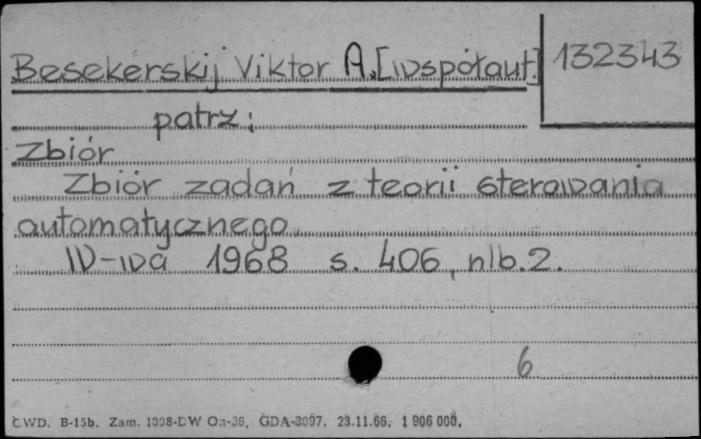 Besekerskij Viktor A. [współaut.]
132343
patrz:
Zbiór
Zbiór zadań z teorii sterowania
automatycznego.
W-wa 1968 s. 406, nlb. 2.
6
CWD. B-15b. Zam. 1008-DW On-36. GDA-3097. 23.11.66. 1 906 000.